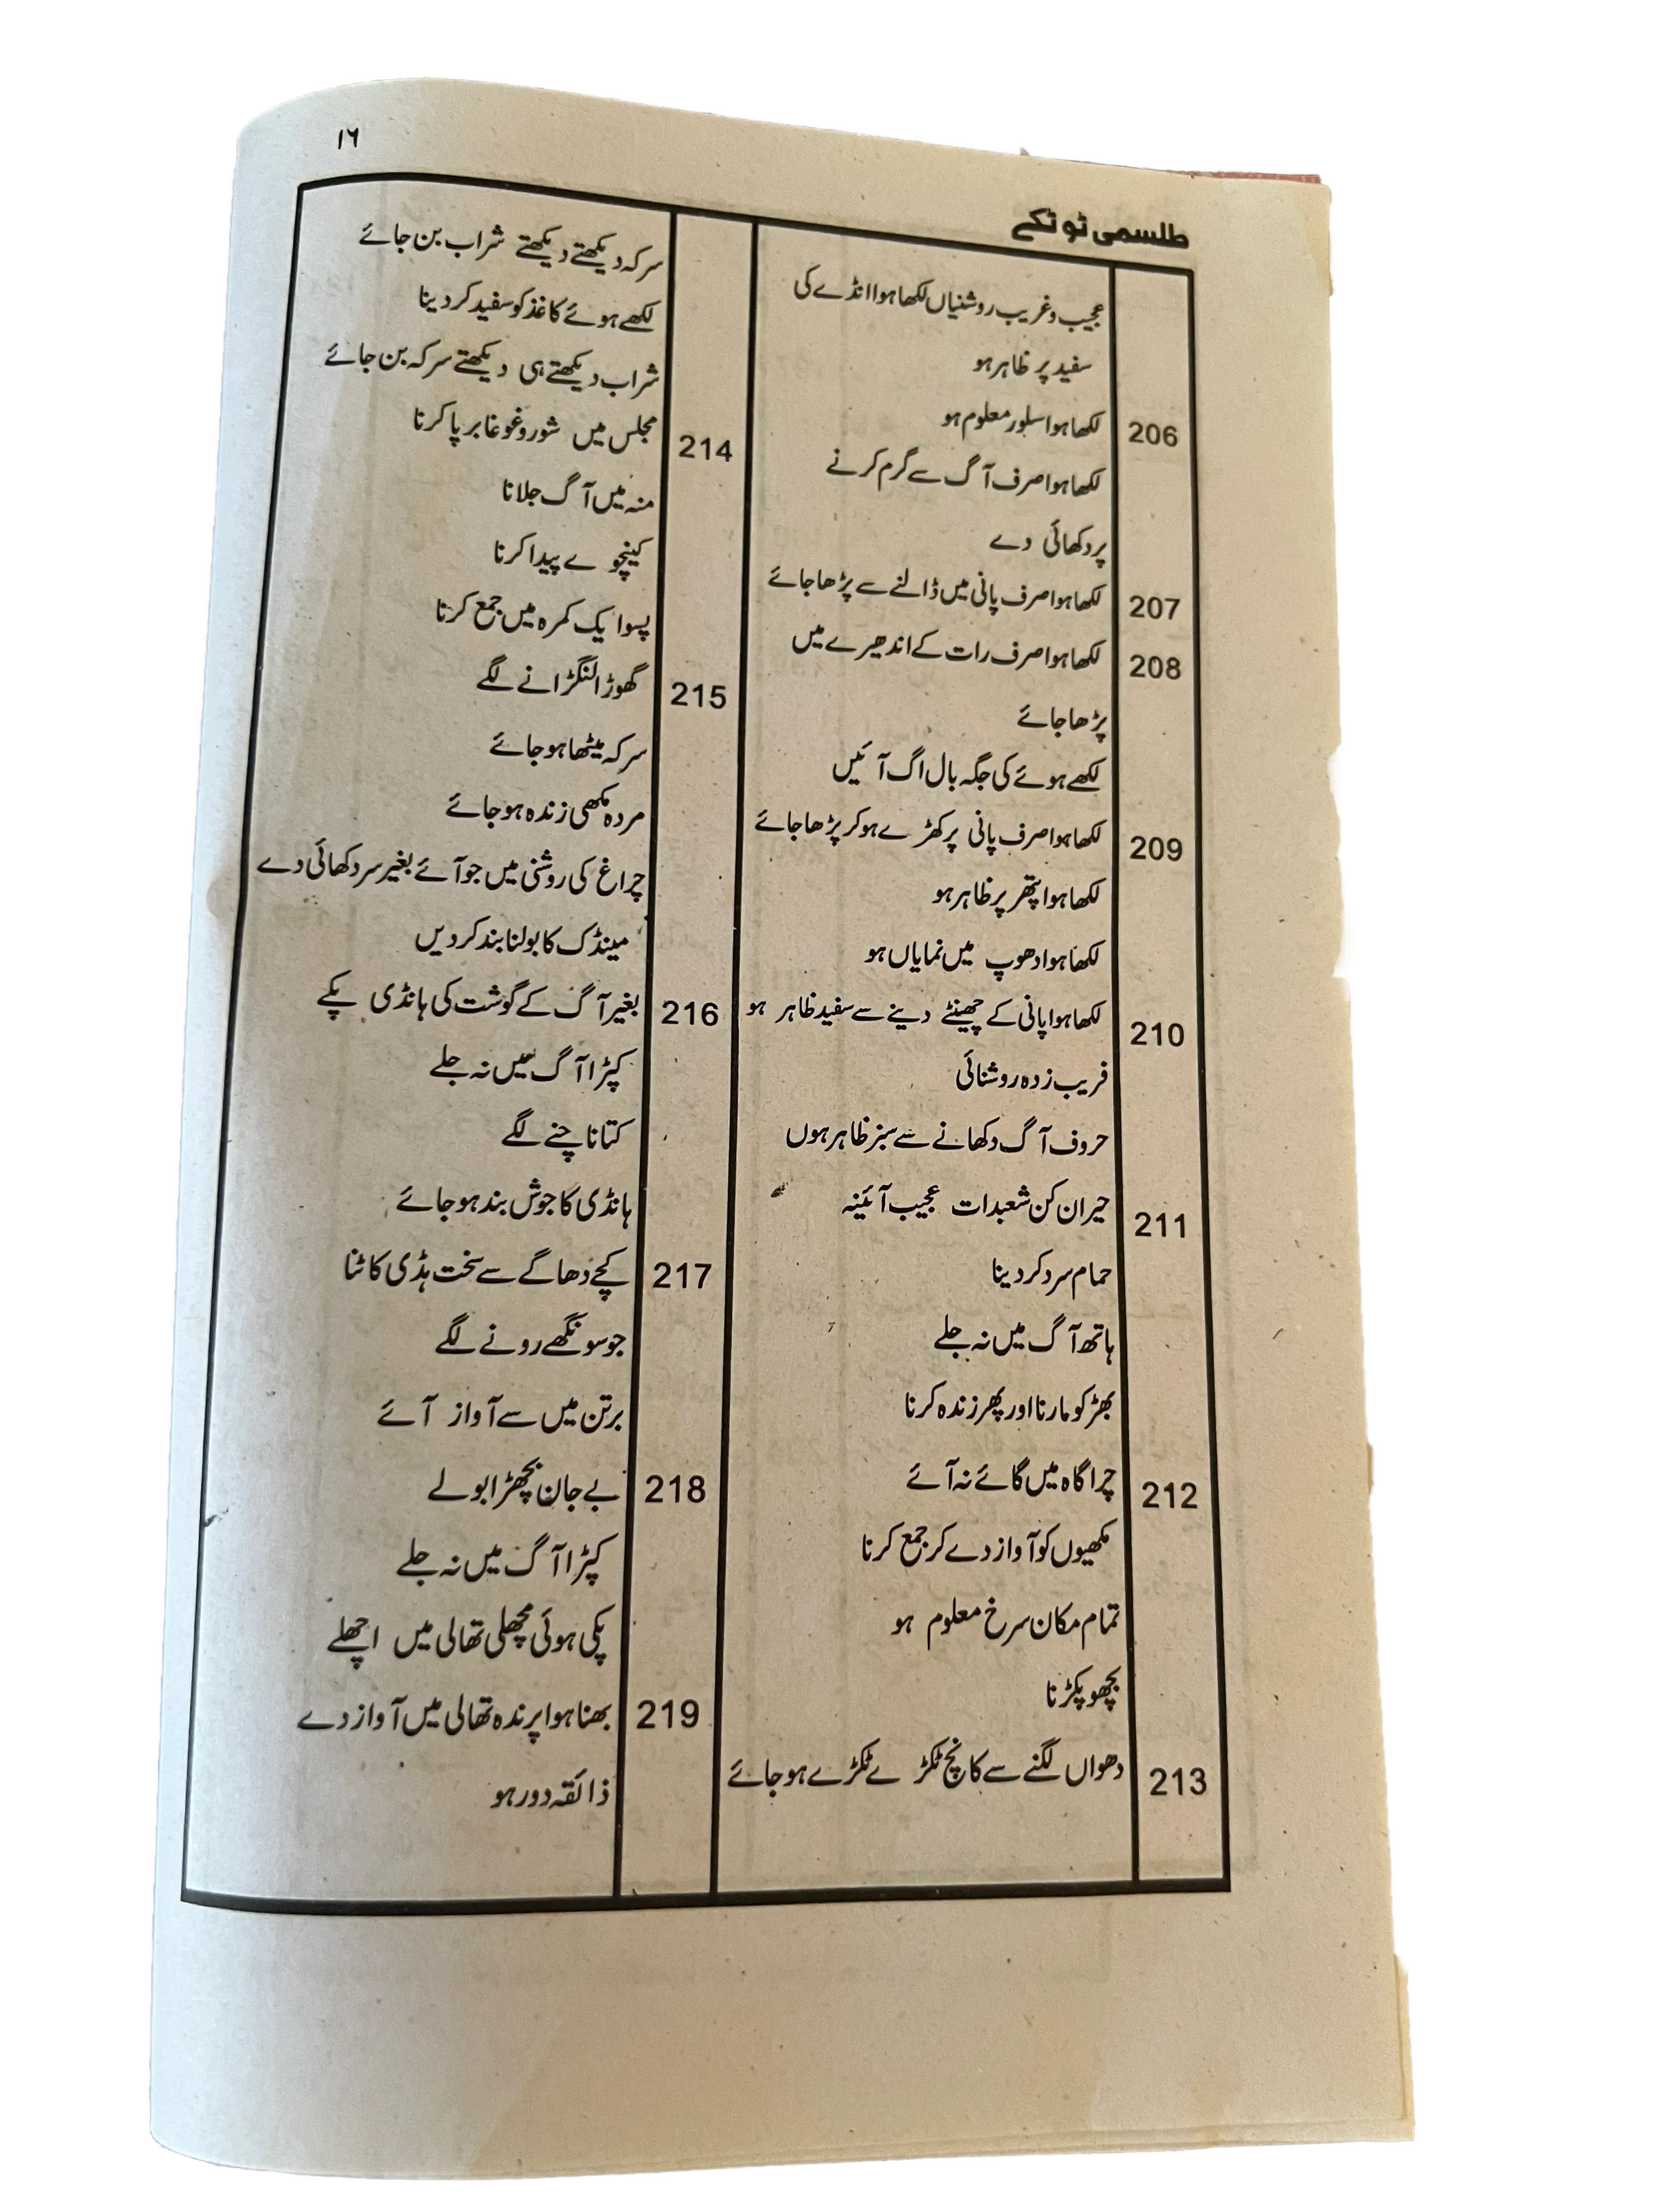 ۱٦
طلسمی ٹوٹکے
عجیب و غریب روشنیاں لکھا ہوا انڈے کی
سفید پر ظاہر ہو
206 لکھا ہوا سلور معلوم ہو
لکھا ہوا صرف آگ سے گرم کرنے
پر دکھائی دے
207 لکھا ہوا صرف پانی میں ڈالنے سے پڑھا جائے
208 لکھا ہوا صرف رات کے اندھیرے میں
پڑھا جائے
لکھے ہوئے کی جگہ بال اگ آئیں
209 لکھا ہوا صرف پانی پر کھڑے ہو کر پڑھا جائے
لکھا ہوا پتھر پر ظاہر ہو
لکھا ہوا دھوپ میں نمایاں ہو
210 لکھا ہوا پانی کے چھینٹے دینے سے سفید ظاہر ہو
فریب زدہ روشنائی
حروف آگ دکھانے سے سبز ظاہر ہوں
211 حیران کن شعبدات عجیب آئینہ
حمام سرد کر دینا
ہاتھ آگ میں نہ جلے
بھڑ کو مارنا اور پھر زندہ کرنا
212 چراگاہ میں گائے نہ آئے
مکھیوں کو آواز دے کر جمع کرنا
تمام مکان سرخ معلوم ہو
بچھو پکڑنا
213 دھواں لگنے سے کانچ ٹکڑے ٹکڑے ہو جائے
سرکہ دیکھتے دیکھتے شراب بن جائے
لکھے ہوئے کاغذ کو سفید کر دینا
شراب دیکھتے ہی دیکھتے سرکہ بن جائے
214 مجلس میں شور و غوغا برپا کرنا
منہ میں آگ جلانا
کینچوے پیدا کرنا
پسو ایک کمرہ میں جمع کرنا
215 گھوڑا لنگڑانے لگے
سرکہ میٹھا ہو جائے
مردہ مکھی زندہ ہو جائے
چراغ کی روشنی میں جو آئے بغیر سر دکھائی دے
مینڈک کا بولنا بند کر دیں
216 بغیر آگ کے گوشت کی ہانڈی پکے
کپڑا آگ میں نہ جلے
کتا ناچنے لگے
ہانڈی کا جوش بند ہو جائے
217 کچے دھاگے سے سخت ہڈی کاٹنا
جو سونگھے رونے لگے
برتن میں سے آواز آئے
218 بے جان بچھڑا بولے
کپڑا آگ میں نہ جلے
پکی ہوئی مچھلی تھالی میں اچھلے
219 بھنا ہوا پرندہ تھالی میں آواز دے
ذائقہ دور ہو